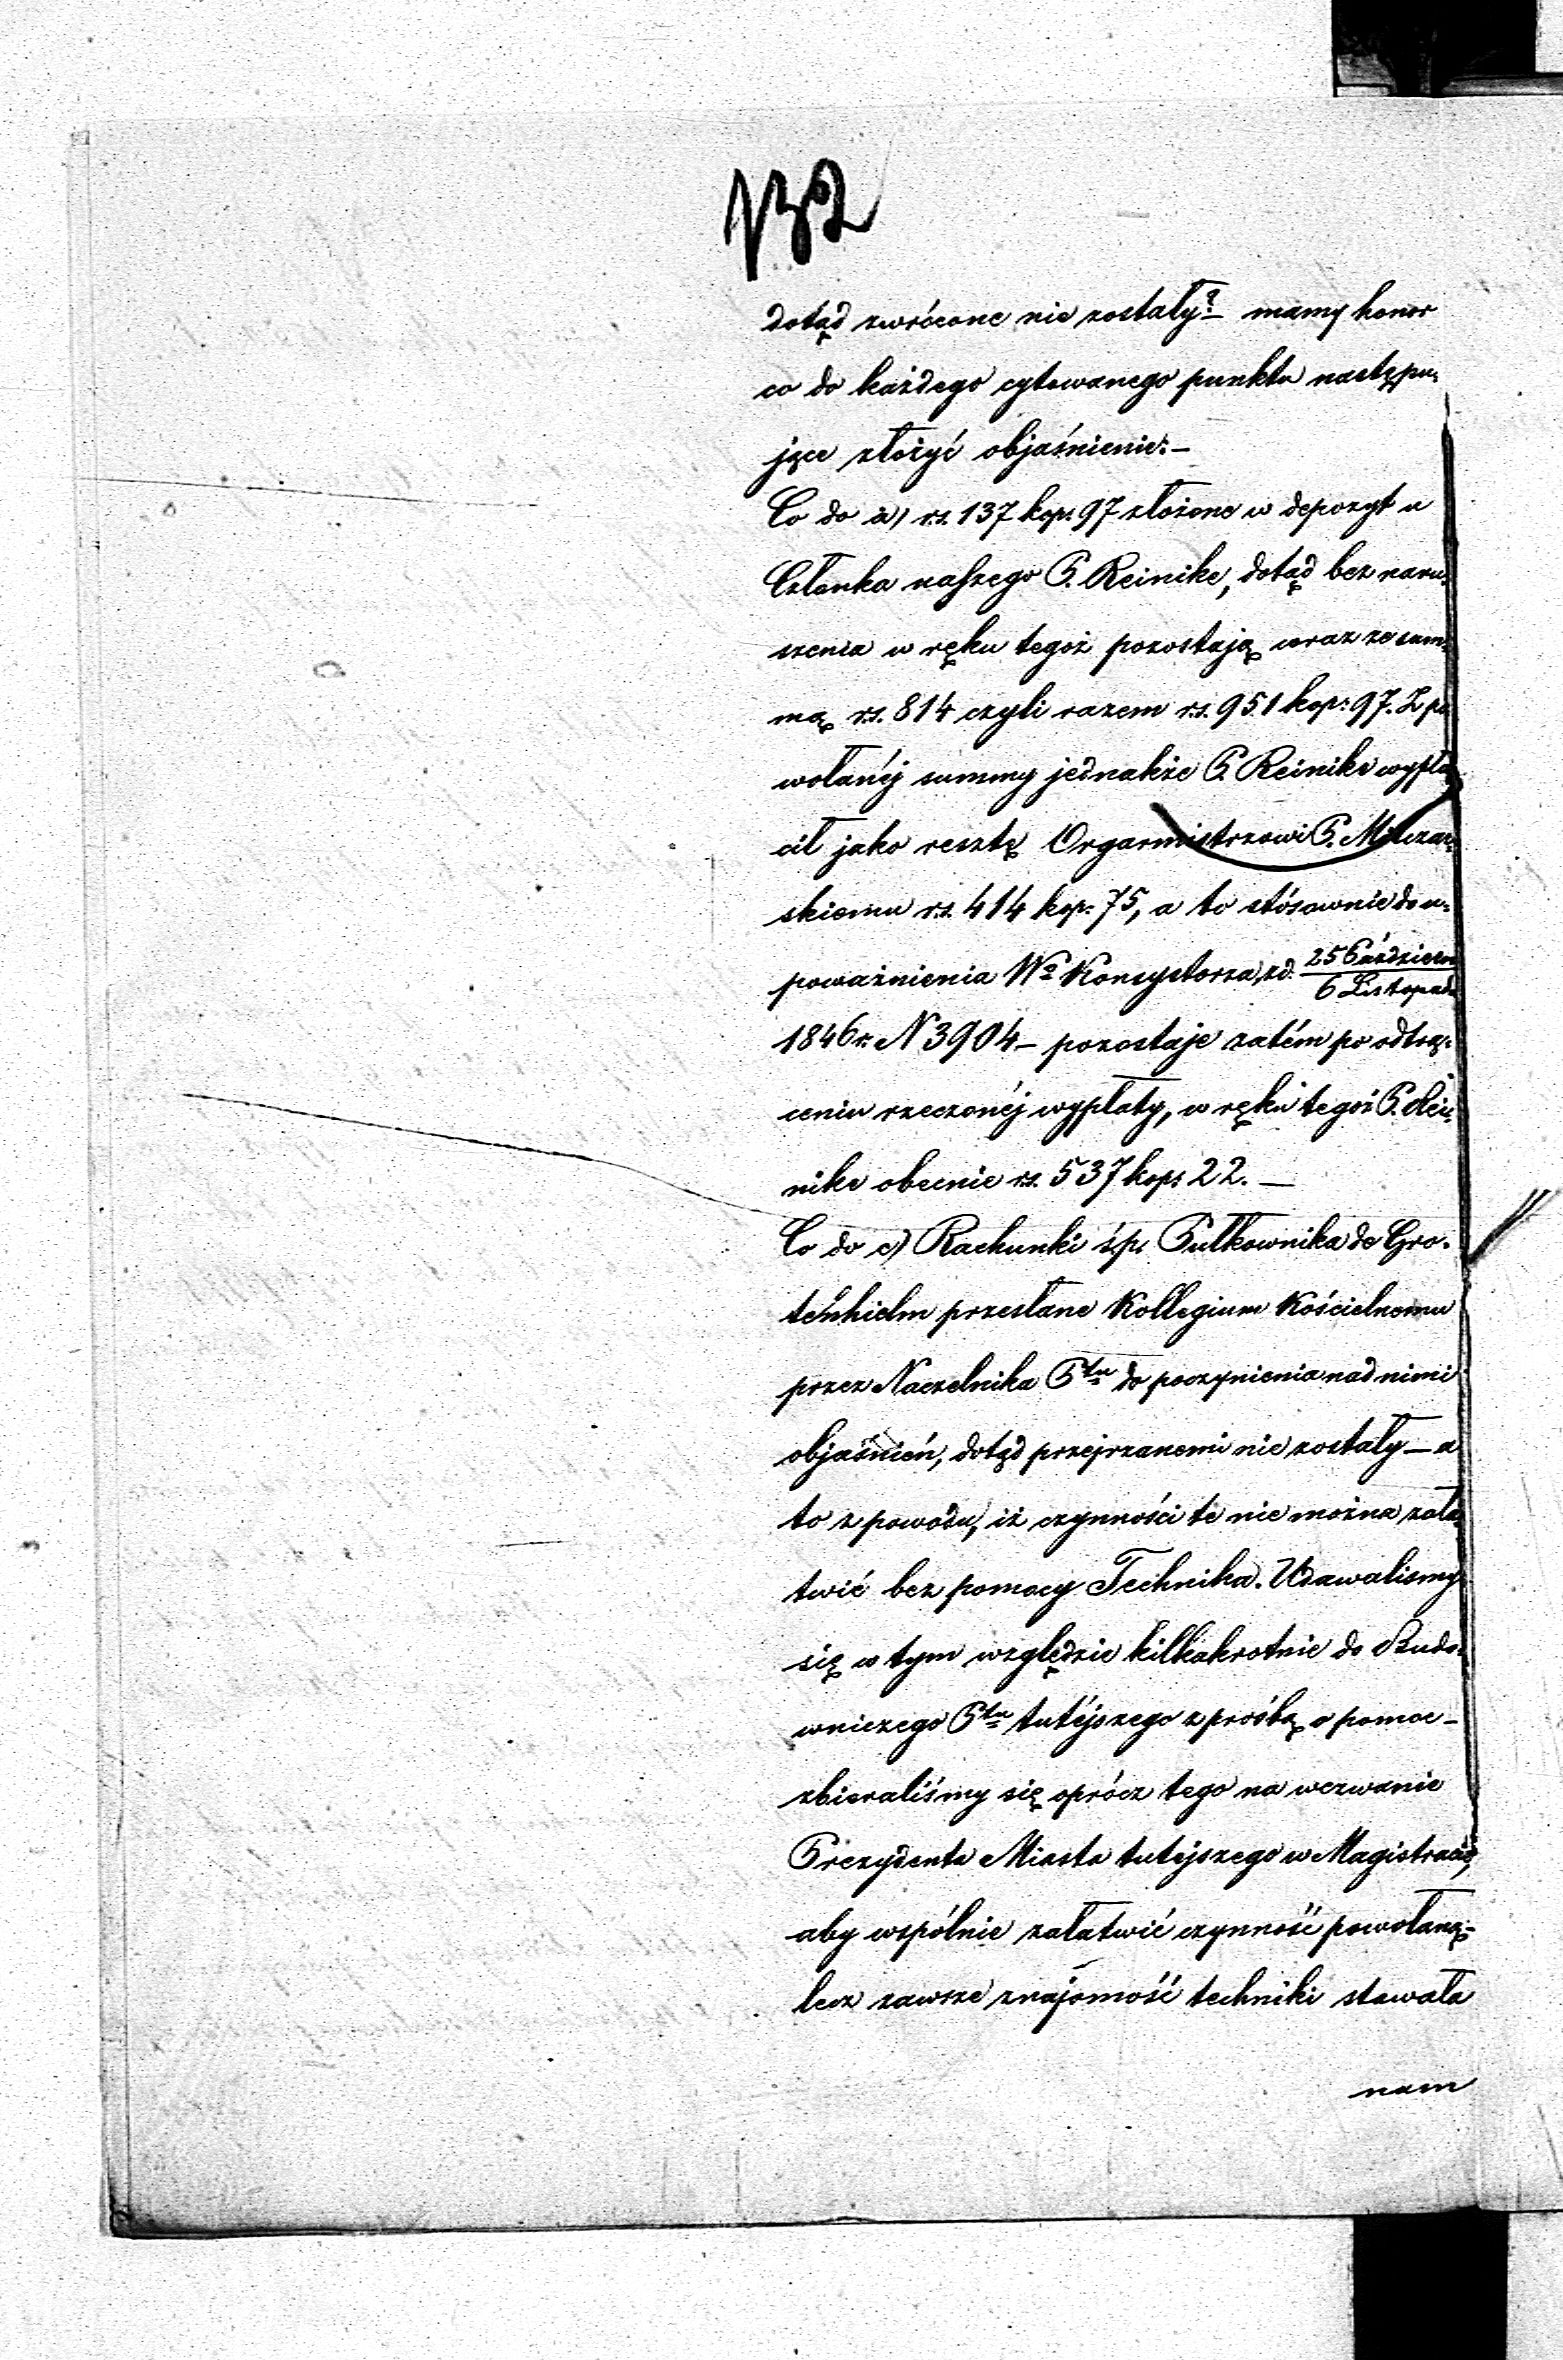 132
dotąd zwrócone nie zostały? — mamy honor
co do każdego cytowanego punktu następu-
jące złożyć objaśnienie: —
Co do a) rs. 137 kop. 97 złożone w depozyt u
Członka naszego P. Reinike, dotąd bez naru-
szenia w ręku tegoż pozostają wraz ze sum-
mą rs. 814 czyli razem rs. 951 kop: 97. Z po-
wołanéj summy jednakże P. Reinike wypła-
cił jako resztę Organmistrzowi P.
skiemu rs. 414 kop: 75, a to stósownie do u-
poważnienia Wo Konsystorza, z d. 25 Paździer
6 Listopada
1846 r. N 3904 — pozostaje zatém po odtrą-
ceniu rzeczonéj wypłaty, w ręku tegoż P. Rei-
nike obecnie rs. 537 kop: 22. —
Co do c) Rachunki ś.p. Pułkownika de Gro-
tenhielm przesłane Kollegium Kościelnemu
przez Naczelnika Ptu do poczynienia nad nimi
objaśnień, dotąd przejrzanemi nie zostały — a
to z powodu, iż czynności te nie można zała-
twić bez pomocy Technika. Udawalismy
się w tym względzie kilkakrotnie do Budo-
wniczego Ptu tutéjszego z prośbą o pomoc —
zbieraliśmy się oprócz tego na wezwanie
Prezydenta Miasta tutejszego w Magistracie,
aby wspólnie załatwić czynność powołaną —
lecz zawsze znajomość techniki stawała
nam